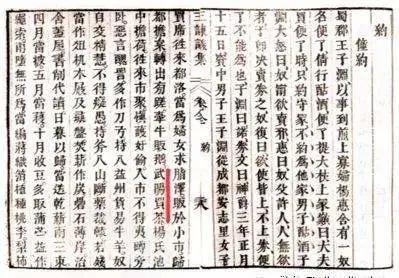 約
僮約
蜀郡王子淵以事到煎上寡婦楊惠舍有一奴
名便了倩行酤酒便了提大杖上冢巔曰大夫
買便了時只約守冢不約為他家男子酤酒子
淵大怒曰奴寧欲賣邪惠曰奴父許人人無欲
者子即決賣券之奴復曰欲使皆上不上券便
了不能為也子淵曰諾券文曰神爵三年正月
十五日資中男子王子淵從成都安志里女
約
賈席往來都洛當為婦女求脂澤販於小市歸
都擔枲轉出旁蹉牽牛販鵝武陽買茶楊氏池
中擔荷往來市聚慎護奸偷入市不得夷蹲旁
臥惡言醜罵多作刀弓持入益州貨易牛羊奴
自交精慧不得癡愚持斧入山斷槧裁轅若殘
當作俎机木屐及彘盤焚薪作炭礨石薄岸治
舍蓋屋書削代牘日暮以歸當送乾薪兩三束
四月當披五月當穫十月收豆多取蒲苧益作
繩索雨墮無所為當編蔣織箔植種桃李梨柿